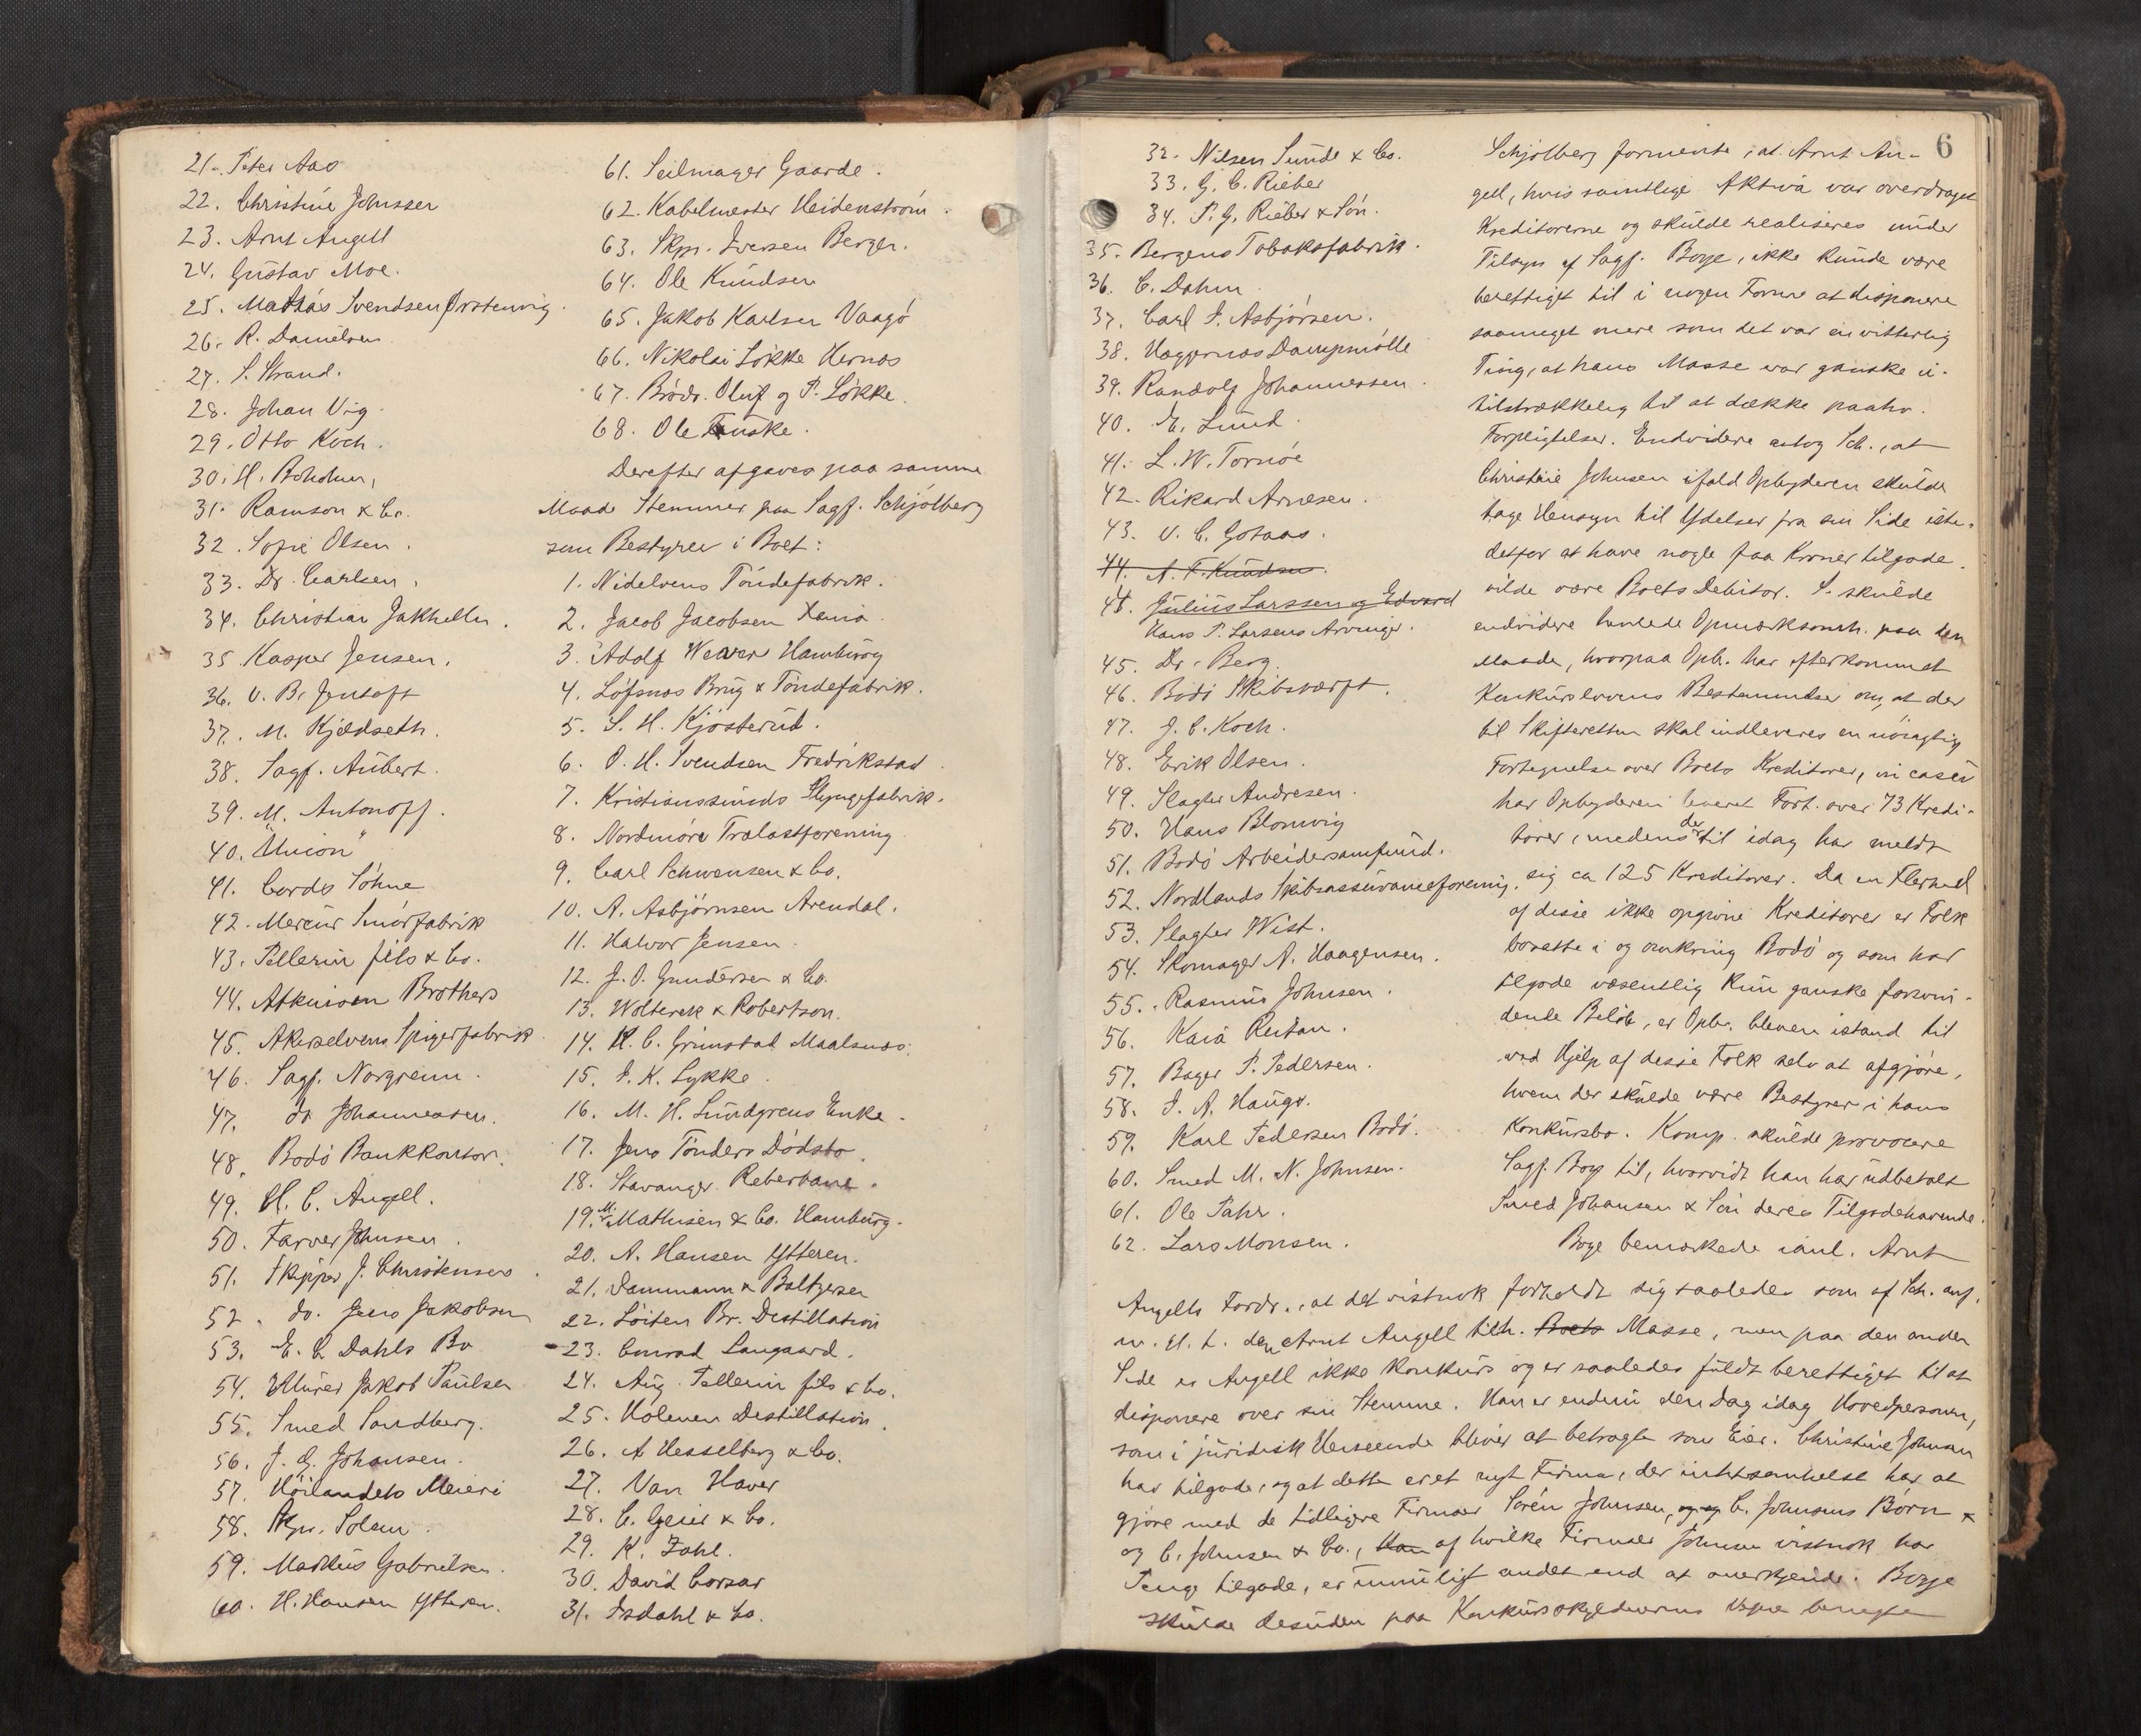 21. Peter Aas
22. Christine Johnsen
23. Arnt Angell
24. Gustav Moe.
25. Mathias Svendsen Ørstenvig.
26. R. Danielsen
27. S. Strand.
28. Johan Vig.
29. Otto Koch.
30. H. Boholm,
31. Ramson & Co.
32. Sofie Olsen.
33. Dr. Carlsen.
34. Christian Jakhelln.
35 Kasper Jensen.
36. V. B. Jentoft
37. M. Kjeldseth.
38. Sagf. Aubert.
39. M. Antonoff.
40. "Union"
41. Cordes Söhne
42. Mercur Smörfabrik
43. Pellerin fils & Co.
44. Atkinson Brothers
45. Akerselvens Spigerfabrik
46. Sagf. Norgrenn.
47. do Johannessen.
48. Bodö Bankkontor.
49. H. C. Angell.
50. Farver Johnsen.
51. Skipper J. Christensen.
52. do. Jens Jakobsen
53. E. C. Dahls Bo
54. Murer Jakob Paulsen
55. Smed Sandberg.
56. J. G. Johansen.
57. Höilandets Meieri
58. Skpr. Solem.
59. Markus Gabrielsen.
60. H. Hansen Ytteren.
61. Seilmager Gaarde.
62. Kabelmester Heidenström.
63. Skpr. Iversen Bergen.
64. Ole Knudsen
65. Jakob Karlsen Vaagö
66. Nikolai Lökke Hernæs
67. Brödr. Oluf og P. Lökke.
68. Ole Fauske.
Derefter afgaves paa samme
Maade Stemmer paa Sagf. Schjölberg
som Bestyrer i Boet:
1. Nidelvens Töndefabrik.
2. Jacob Jacobsen Xania.
3. Adolf Weaver Hamburg
4. Löfsnæs Brug & Töndefabrik.
5. S. H. Kjösterud.
6. O. H. Svendsen Fredrikstad.
7. Kristianssunds Slyngefabrik.
8. Nordmöre Trælastforening.
9. Carl Schwensen & Co.
10. A. Asbjörnsen Arendal.
11. Halvor Jensen.
12. J. O. Gundersen & Co.
13. Wolterek & Robertson.
14. H. C. Grimstad Maalsnæs.
15. I. K. Lykke.
16. M. H. Lundgrens Enke.
17. Jens Tönders Dödsbo.
18. Stavanger Reberbane.
19. M. Mathisen & Co. Hamburg.
20. A. Hansen Ytteren.
21. Dammann & Baltzersen
22. Löiten Br. Destillation
23. Conrad Langaard.
24. Aug. Pellerin fils & Co.
25. Holenen Destillation.
26. A Hesselberg & Co.
27. Van Haver
28. C. Geier & Co.
29. K. Zahl.
30. David Corsar
31. Isdahl & Co.
32. Nilsen Sunde & Co.
33. G. C. Rieber
34. P. G. Rieber & Sön.
35. Bergens Tobaksfabrik.
36. C. Dahm
37. Carl P. Asbjörsen.
38. Vaggernæs Dampmölle
39. Randolg Johannessen.
40. E. Lund.
41. L. W. Tornöe
42. Rikard Arnesen.
43. V. C. Gotaas.
44. A. F. Knudsen.
44. Julius Larssen og Edvard
Hans P. Larsens Arvinger.
45. Dr. Berg.
46. Bodö Skibsværft.
47. J. C. Koch.
48. Erik Olsen.
49. Slagter Andresen.
50. Hans Blomvig
51. Bodö Arbeidersamfund.
52. Nordlands Skibsassuranceforening.
53. Slagter Wist.
54. Skomager N. Haagensen.
55. Rasmus Johnsen.
56. Kaia Reitan.
57. Bager P. Pedersen.
58. J. A. Haugs.
59. Karl Pedersen Bodö.
60. Smed M. N. Johnsen.
61. Ole Pahr.
62. Lars Monsen.
6
Schjölberg formente, at Arnt An-
gell, hvis samtlige Aktiva var overdraget
Kreditorerne og skulde realiseres under
Tilsyn af Sagf. Boye, ikke kunde være
berettiget til i nogen Form at disponere
saameget mere som det var en vitterlig
Ting, at hans Masse var ganske u-
tilstrækkelig til at dække paahv.
Forpligtelser. Endvidere antog Sch., at
Christine Johnsen ifald Opbyderen skulde
tage Hensyn til Ydelser fra sin Side iste-
detfor at have nogle faa Kroner tilgode
vilde være Boets Debitor. S. skulde
endvidere henlede Opmærksomh. paa den
Maade, hvorpaa Opb. har efterkommet
Konkurslovens Bestemmelser om, at der
til Skifteretten skal indleveres en nöiagtig
Fortegnelse over Boets Kreditorer, in casu
har Opbyderen leveret Fort. over 73 Kredi-
torer, medens der til idag har meldt
sig ca 125 Kreditorer. Da en Flerhed
af disse ikke opgivne Kreditorer er Folk
bosatte i og omkring Bodö og som har
tilgode væsentlig kun ganske forsvin-
dende Belöb, er Opb. bleven istand til
ved Hjelp af disse Folk selv at afgjöre,
hvem der skulde være Bestyrer i hans
Konkursbo. Komp. skulde provocere
Sagf. Boye til, hvorvidt han har udbetalt
Smed Johansen & Sön deres Tilgodehavende.
Boye bemærkede i anl. Arnt
Angells Fordr., at det vistnok forholdt sig saaledes som af Sch. anf.
m. H. t. den Arnt Angell tilh. Boets Masse, men paa den anden
Side er Angell ikke konkurs og er saaledes fuldt berettiget til at
disponere over sin Stemme. Han er endnu den Dag idag Hovedpersonen,
som i juridisk Henseende bliver at betragte som Eier. Christine Johnsen
har tilgode, og at dette er et nyt Firma, der intetsomhelst har at
gjöre med de tidligere Firmaer Sören Johnsen, og C. Johnsens Börn &
og C. Johnsen & Co., Han af hvilke Firmaer Johnsen vistnok har
Penge tilgode, er umuligt andet end at anerkjende. Boye
skulde desuden paa Konkursskyldnerens Vegne benægte